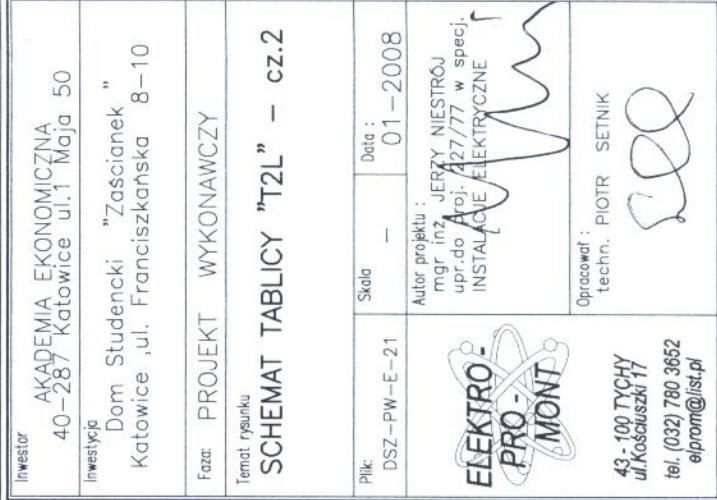 Inwestor
AKADEMIA EKONOMICZNA
40-287 Katowice ul.1 Maja 50
Inwestycja
Dom Studencki "Zaścianek"
Katowice ,ul. Franciszkańska 8-10
Faza: PROJEKT WYKONAWCZY
Temat rysunku
SCHEMAT TABLICY "T2L" - cz.2
Plik:
DSZ-PW-E-21
Skala
-
Data :
01-2008
ELEKTRO-
PRO-
MONT
43 - 100 TYCHY
ul.Kościuszki 17
tel. (032) 780 3652
elprom@list.pl
Autor projektu :
mgr inż JERZY NIESTRÓJ
upr.do proj. 227/77 w specj.
INSTALACJE ELEKTRYCZNE
Opracował :
techn. PIOTR SETNIK